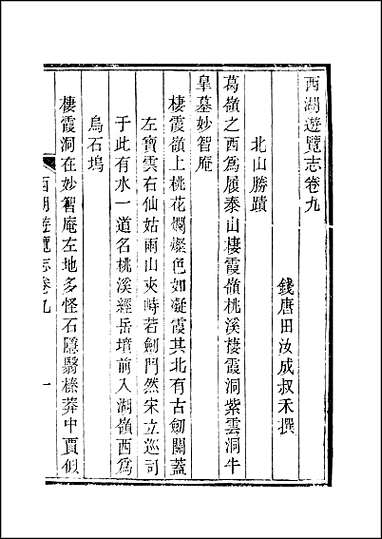 西湖遊覽志卷九
錢唐田汝成叔禾撰
北山勝蹟
葛嶺之西爲履泰山棲霞嶺桃溪棲霞洞紫雲洞牛
臯墓妙智庵
棲霞嶺上桃花爛燦色如凝霞其北有古劒關蓋
左寶雲右仙姑兩山夾峙若劒門然宋立巡司
于此有水一道名桃溪經岳墳前入湖嶺西爲
烏石塢
棲霞洞在妙智庵左地多怪石隱翳榛莽中賈似
西湖遊覽志卷九
一